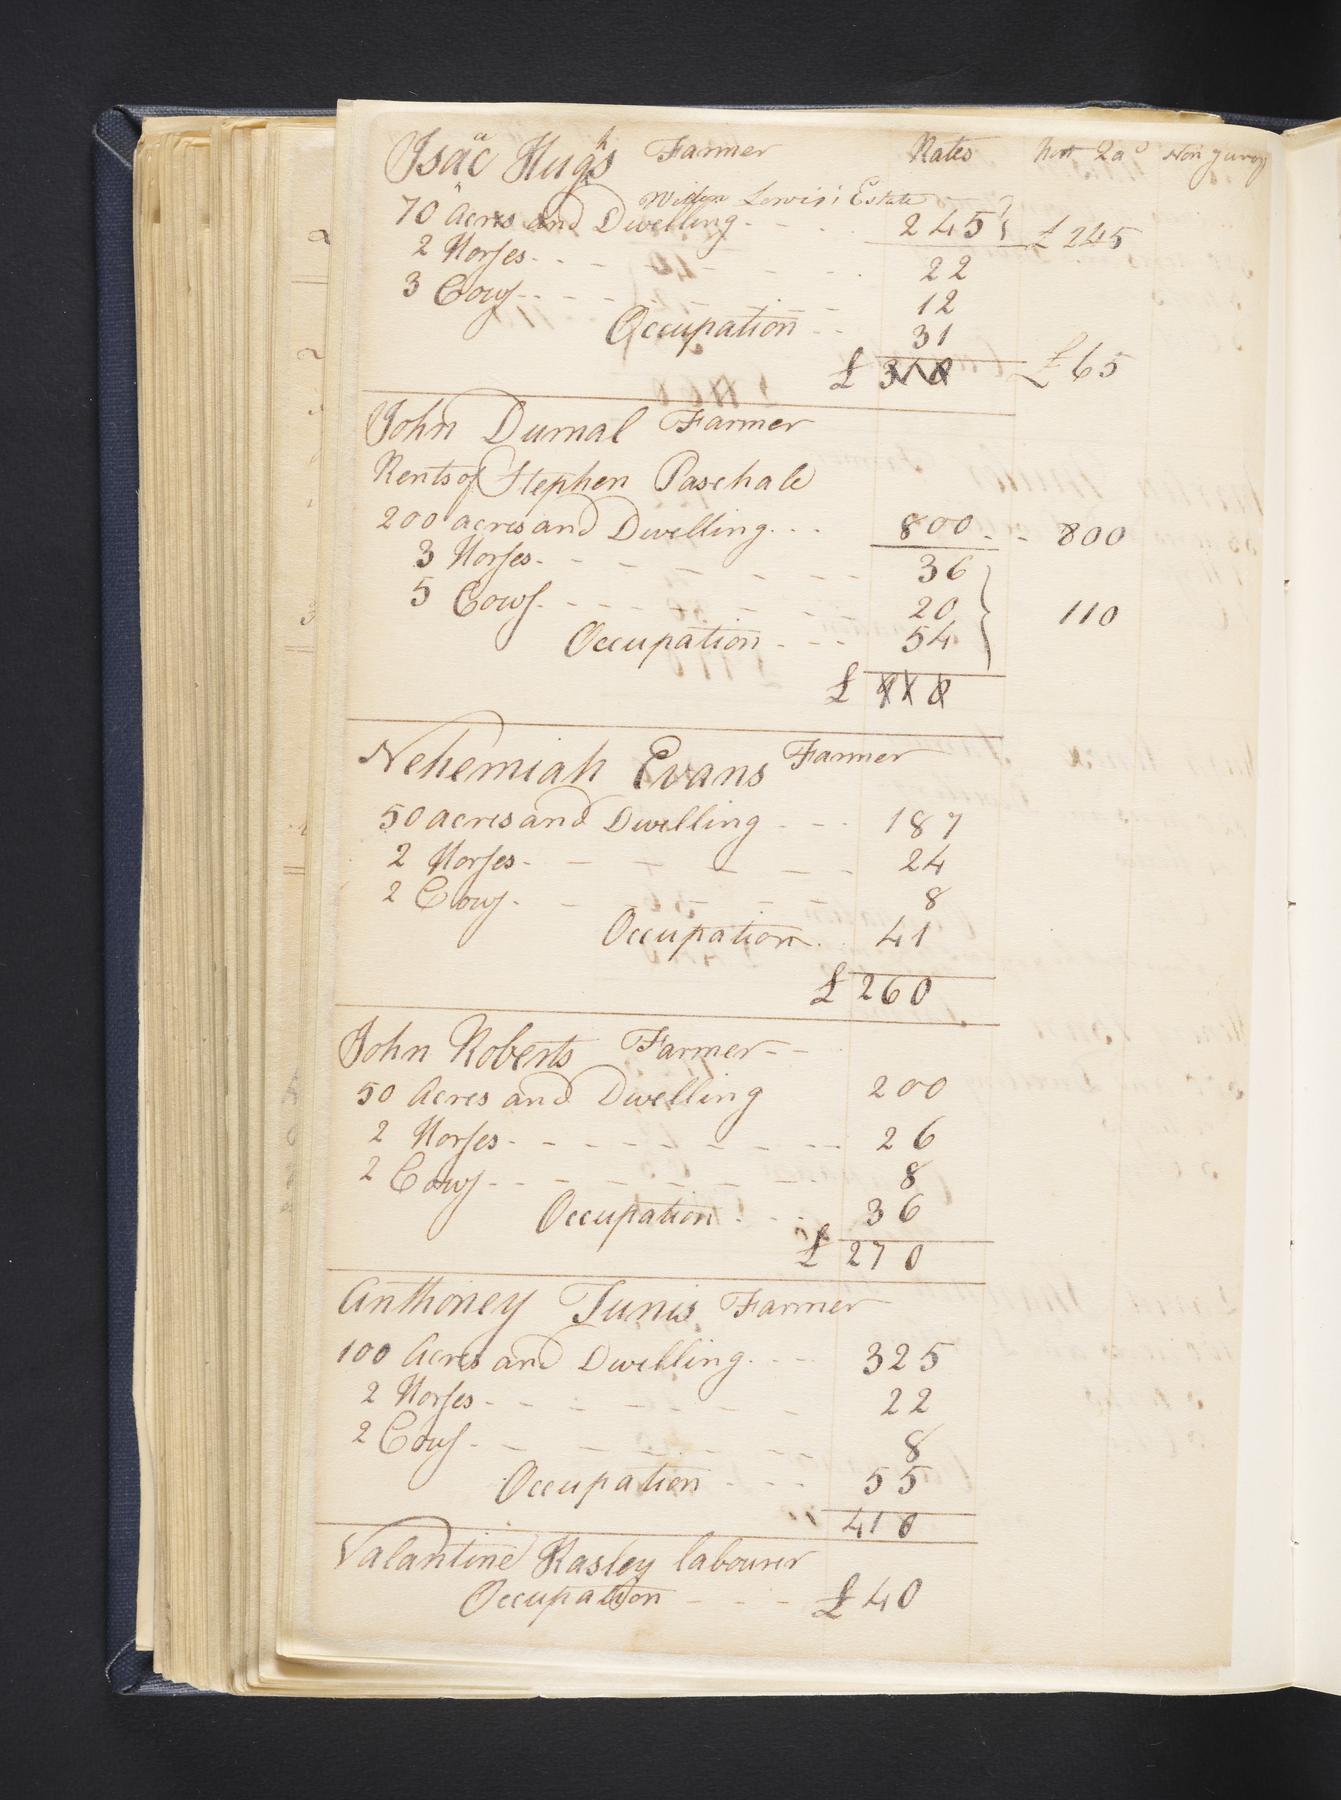 Isaac Hughs Farmer Rates Non Jurors
Willm Lewis's Estate
70 Acres and Dwelling - - - 245 £245
2 Horses - - - 22
3 Cows - - - 12
Occupation - - 31
£ 310 £65
John Dumal Farmer
Rents of Stephen Paschale
200 acres and Dwelling - - - 800 - - 800
3 Horses - - - 36
5 Cows - - - 20 110
Occupation - - - 54
£ 110
Nehemiah Evans Farmer
50 acres and Dwelling - - - 187
2 Horses - - - 24
2 Cows - - - 8
Occupation - - 41
£ 260
John Roberts Farmer - -
50 Acres and Dwelling 200
2 Horses - - - 26
2 Cows - - - 8
Occupation - - - 36
£ 270
Anthoney Tunis Farmer
100 Acres and Dwelling - - - 325
2 Horses - - - 22
2 Cows - - - 8
Occupation - - - 55
410
Valantine Rasley labourer
Occupation - - - £40